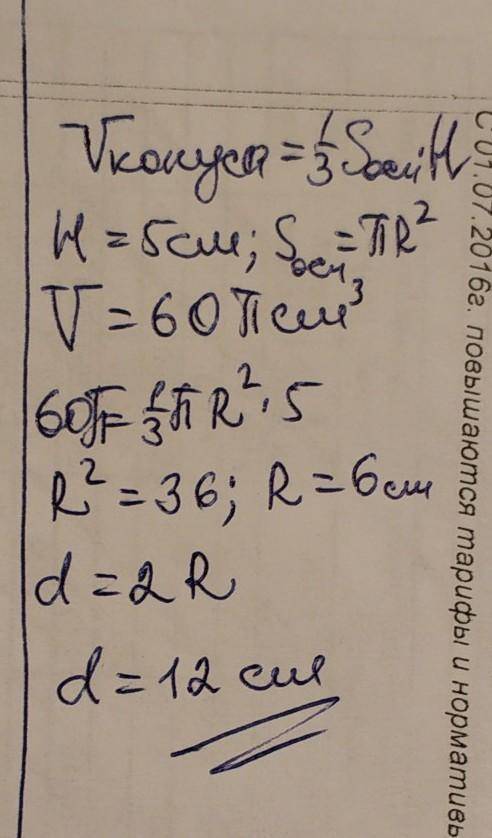 Vконуса = 1/3 Sосн H
H = 5см; Sосн = πR²
V = 60π см³
60π = 1/3 πR² · 5
R² = 36; R = 6см
d = 2R
d = 12 см
С 01.07.2016г. повышаются тарифы и нормативы